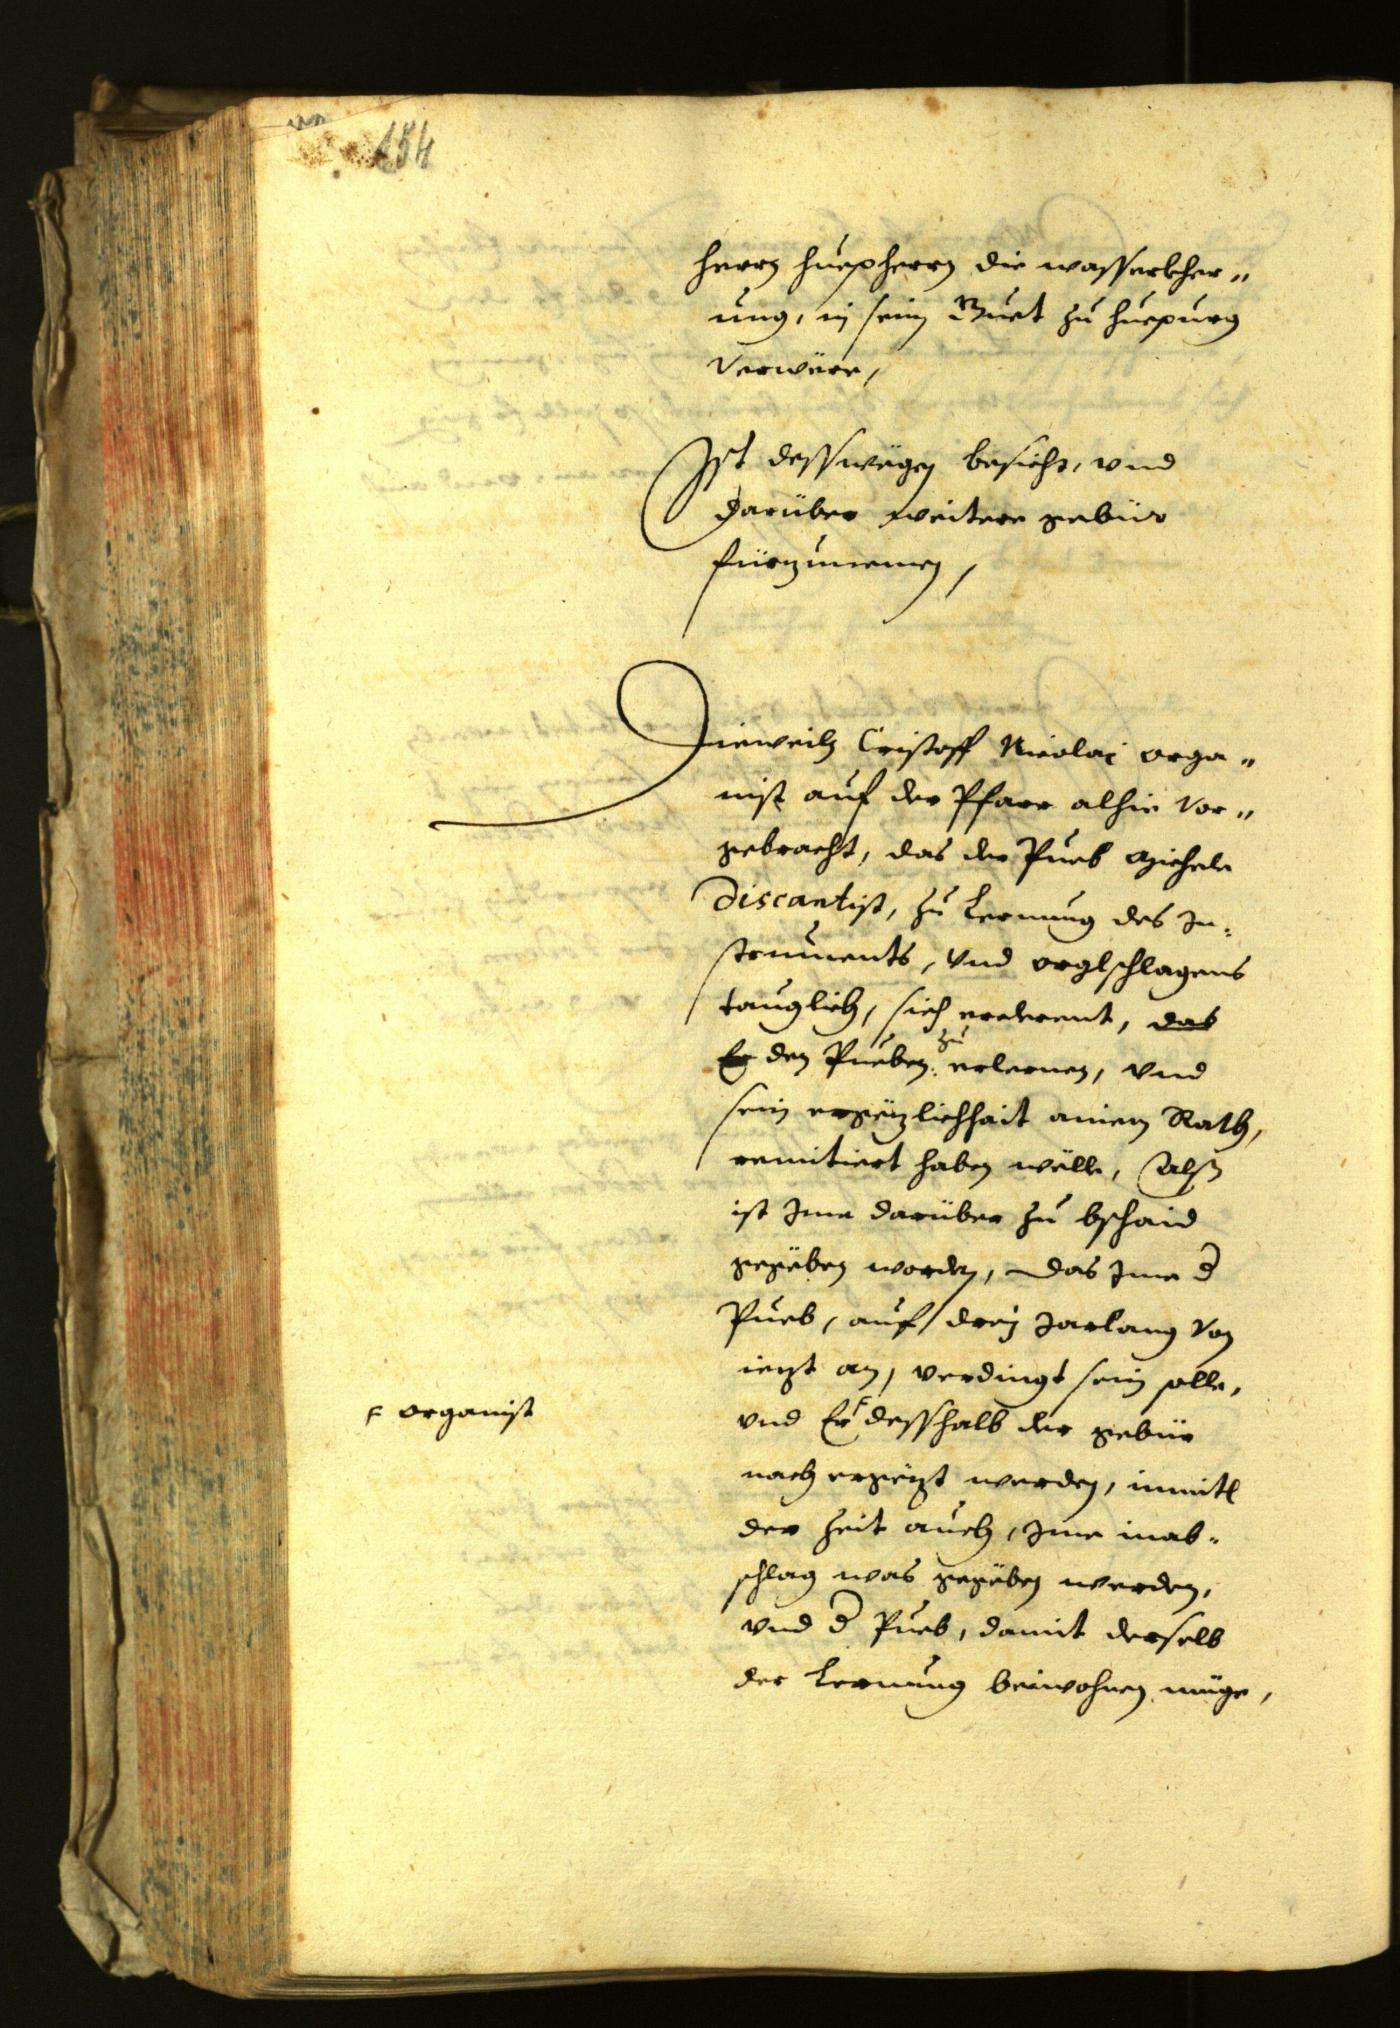 154
herrn Huepherrn die wasserkher„
ung, in sein Guet zu Huepurg
verwëre,
Ist desswëgen besicht, vnd
darüber weitere gebür
fürzunemen,
Dieweilh Cristoff Nicolai orga„
nist auf der Pfarr alhie vor„
gebracht, das der Pueb Michele
Discantist, zu Lernung des In„
struments, vnd orglschlagens
tauglich, sich erkrent, das
Er den Pueben zu erlernen, vnd
sein ergëtzlichhait ainem Rath,
remitiert haben wölle, Alss
ist Ime darüber zu bschaid
gegëben worden, das Ime d
Pueb, auf drey Jarlang von
ietzt an, verdingt sein solle,
vnd Er desshalb der gebür
organist
nach ergëtzt werden, inmitl
der Zeit auch, Ime inab„
schlag was gegëben werden,
vnd d Pueb, damit derselb
der Lernung beiwohnen müge,